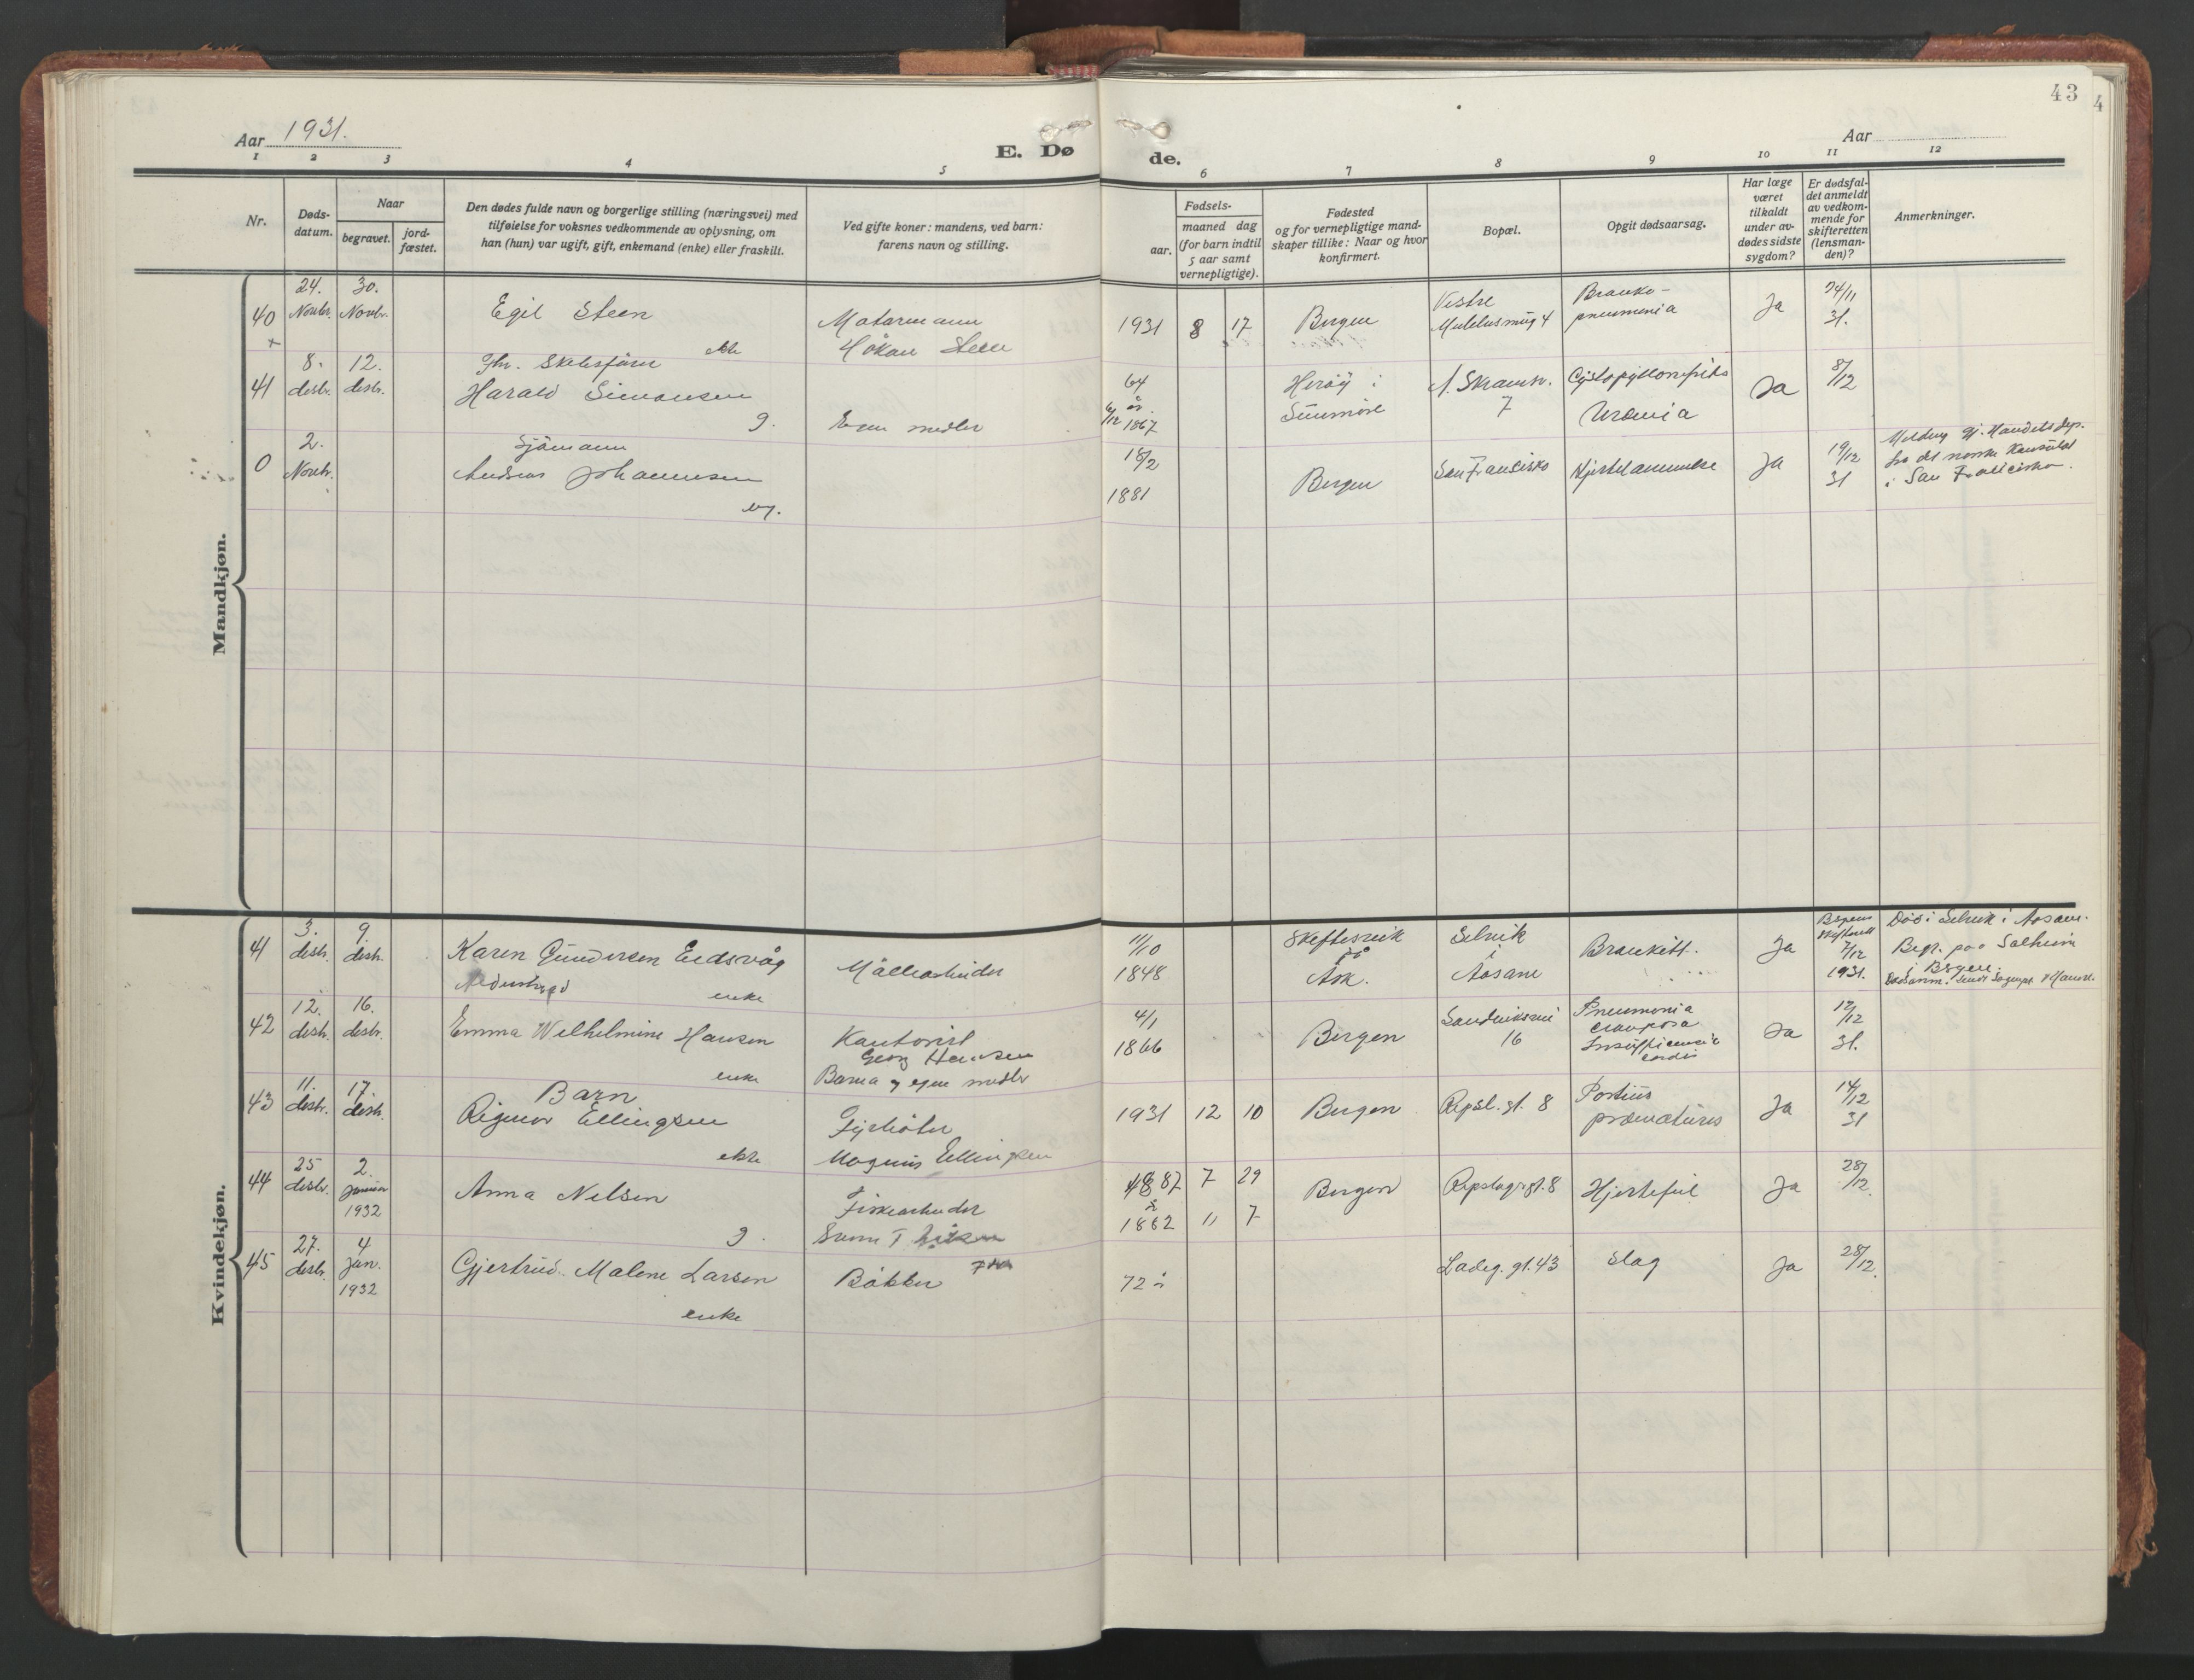 43
4
Aar 1931.
E. Dø
de.
Aar
1 2 3 4 5 6 7 8 9 10 11 12
Nr.
Døds-
datum.
Naar
begravet.
jord-
fæstet.
Den dødes fulde navn og borgerlige stilling (næringsvei) med
tilføielse for voksnes vedkommende av oplysning, om
han (hun) var ugift, gift, enkemand (enke) eller fraskilt.
Ved gifte koner: mandens, ved barn:
farens navn og stilling.
Fødsels-
aar.
maaned dag
(for barn indtil
5 aar samt
vernepligtige).
Fødested
og for vernepligtige mand-
skaper tillike: Naar og hvor
konfirmert.
Bopæl.
Opgit dødsaarsag.
Har læge
været
tilkaldt
under av-
dødes sidste
sygdom?
Er dødsfal-
det anmeldt
av vedkom-
mende for
skifteretten
(lensman-
den)?
Anmerkninger.
Mandkjøn.
40
24. Novbr.
30. Novbr.
Egil Steen
ekte
Motormann
Håkon Steen
1931 8 17
Bergen
Vestre
Muhlesmug 4
Bronko-
pneumonia
Ja
24/11
31.
41
8. desbr.
12. desbr.
Fhv. Skibsfører
Harald Simonsen
g.
Egne midler
64
år.
6/12 1867
Herøy i
Sunmøre
N. Skramsv.
7
Cystopyelonefritis
Uremia
Ja
8/12
0
2. Novbr.
Sjømann
Andreas Johannesen
ug.
18/2
1881
Bergen
San Francisko
Hjertelammelse
Ja
19/12
31
Melding gj. Handelsdep.
fra det norske Konsulat
i San Francisko.
Kvindekjøn.
41
3. desbr.
9. desbr.
Karen Gundersen Eidsvåg
enke
Møllearbeider
11/10
1848
på
Ask.
Selvik
i
Aasane
Bronkitt.
Ja
Bergens
Skifterett
7/12
1931.
Død i Selvik i Aasane.
Begr. paa Solheim
i Bergen.
42
12. desbr.
16. desbr.
Emma Wilhelmine Hansen
enke
Kontorist
Georg Hansen
Barna og egne midler
4/1
1866
Bergen
Sandviksvei
16
Pneumonia
crouposa
Insufficiencia
cordis
Ja
12/12
31.
43
11. desbr.
17. desbr.
Barn
Rigmor Ellingsen
ekte
Fyrbøter
Magnus Ellingsen
1931 12 10
Bergen
Repsl. gt. 8
Partus
præmaturus
Ja
14/12
31
44
25 desbr.
2. januar
1932
Anna Nelsen
g.
Fiskearbeider
7 29
1862 11 7
Bergen
Repslagergt. 8
Hjertefeil
Ja
28/12.
45
27. desbr.
4 Jan.
1932
Gjertrud Malene Larsen
enke
Bøkker
72 år
Ladeg. gt. 43
Slag
Ja
28/12.